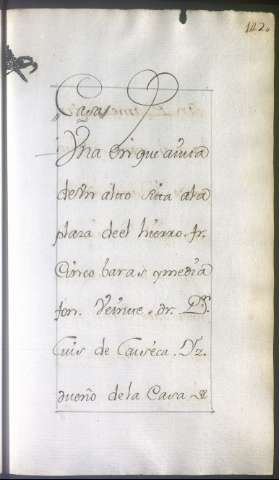 142.
Casas
Una en que avita
de Un alto sita a la
plaza deel hierro. fr.
Cinco baras y media
fon. Veinte. dr. Dn.
Luis de Causeca. Yz.
dueño de la Casa &